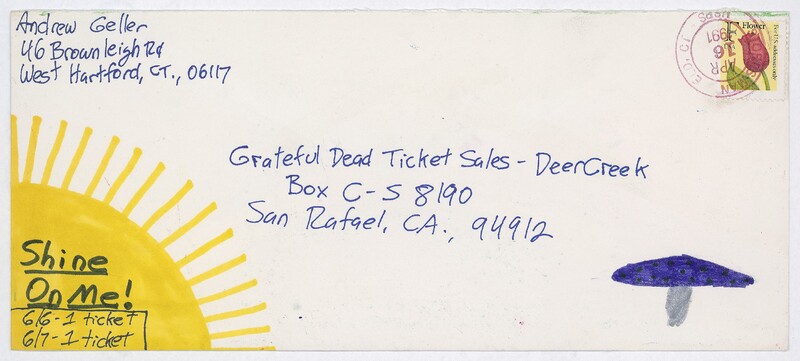 Andrew Geller
46 Brownleigh Rd
West Hartford, CT., 06117
Flower
For U.S. addresses only
APR
16
1991
USPS
Grateful Dead Ticket Sales - DeerCreek
Box C-S 8190
San Rafael, CA., 94912
Shine
On Me!
6/6-1 ticket
6/7-1 ticket